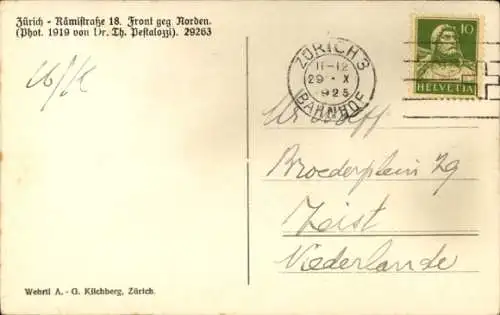 Zürich - Rämistraße 18. Front geg Norden.
(Phot. 1919 von Dr. Th. Pestalozzi). 29263
ZÜRICH 3
11-12
29 · X
1925
BAHNHOF
10
HELVETIA
Broederplein 29
Zeist
Niederlande
Wehrli A. - G. Kilchberg, Zürich.